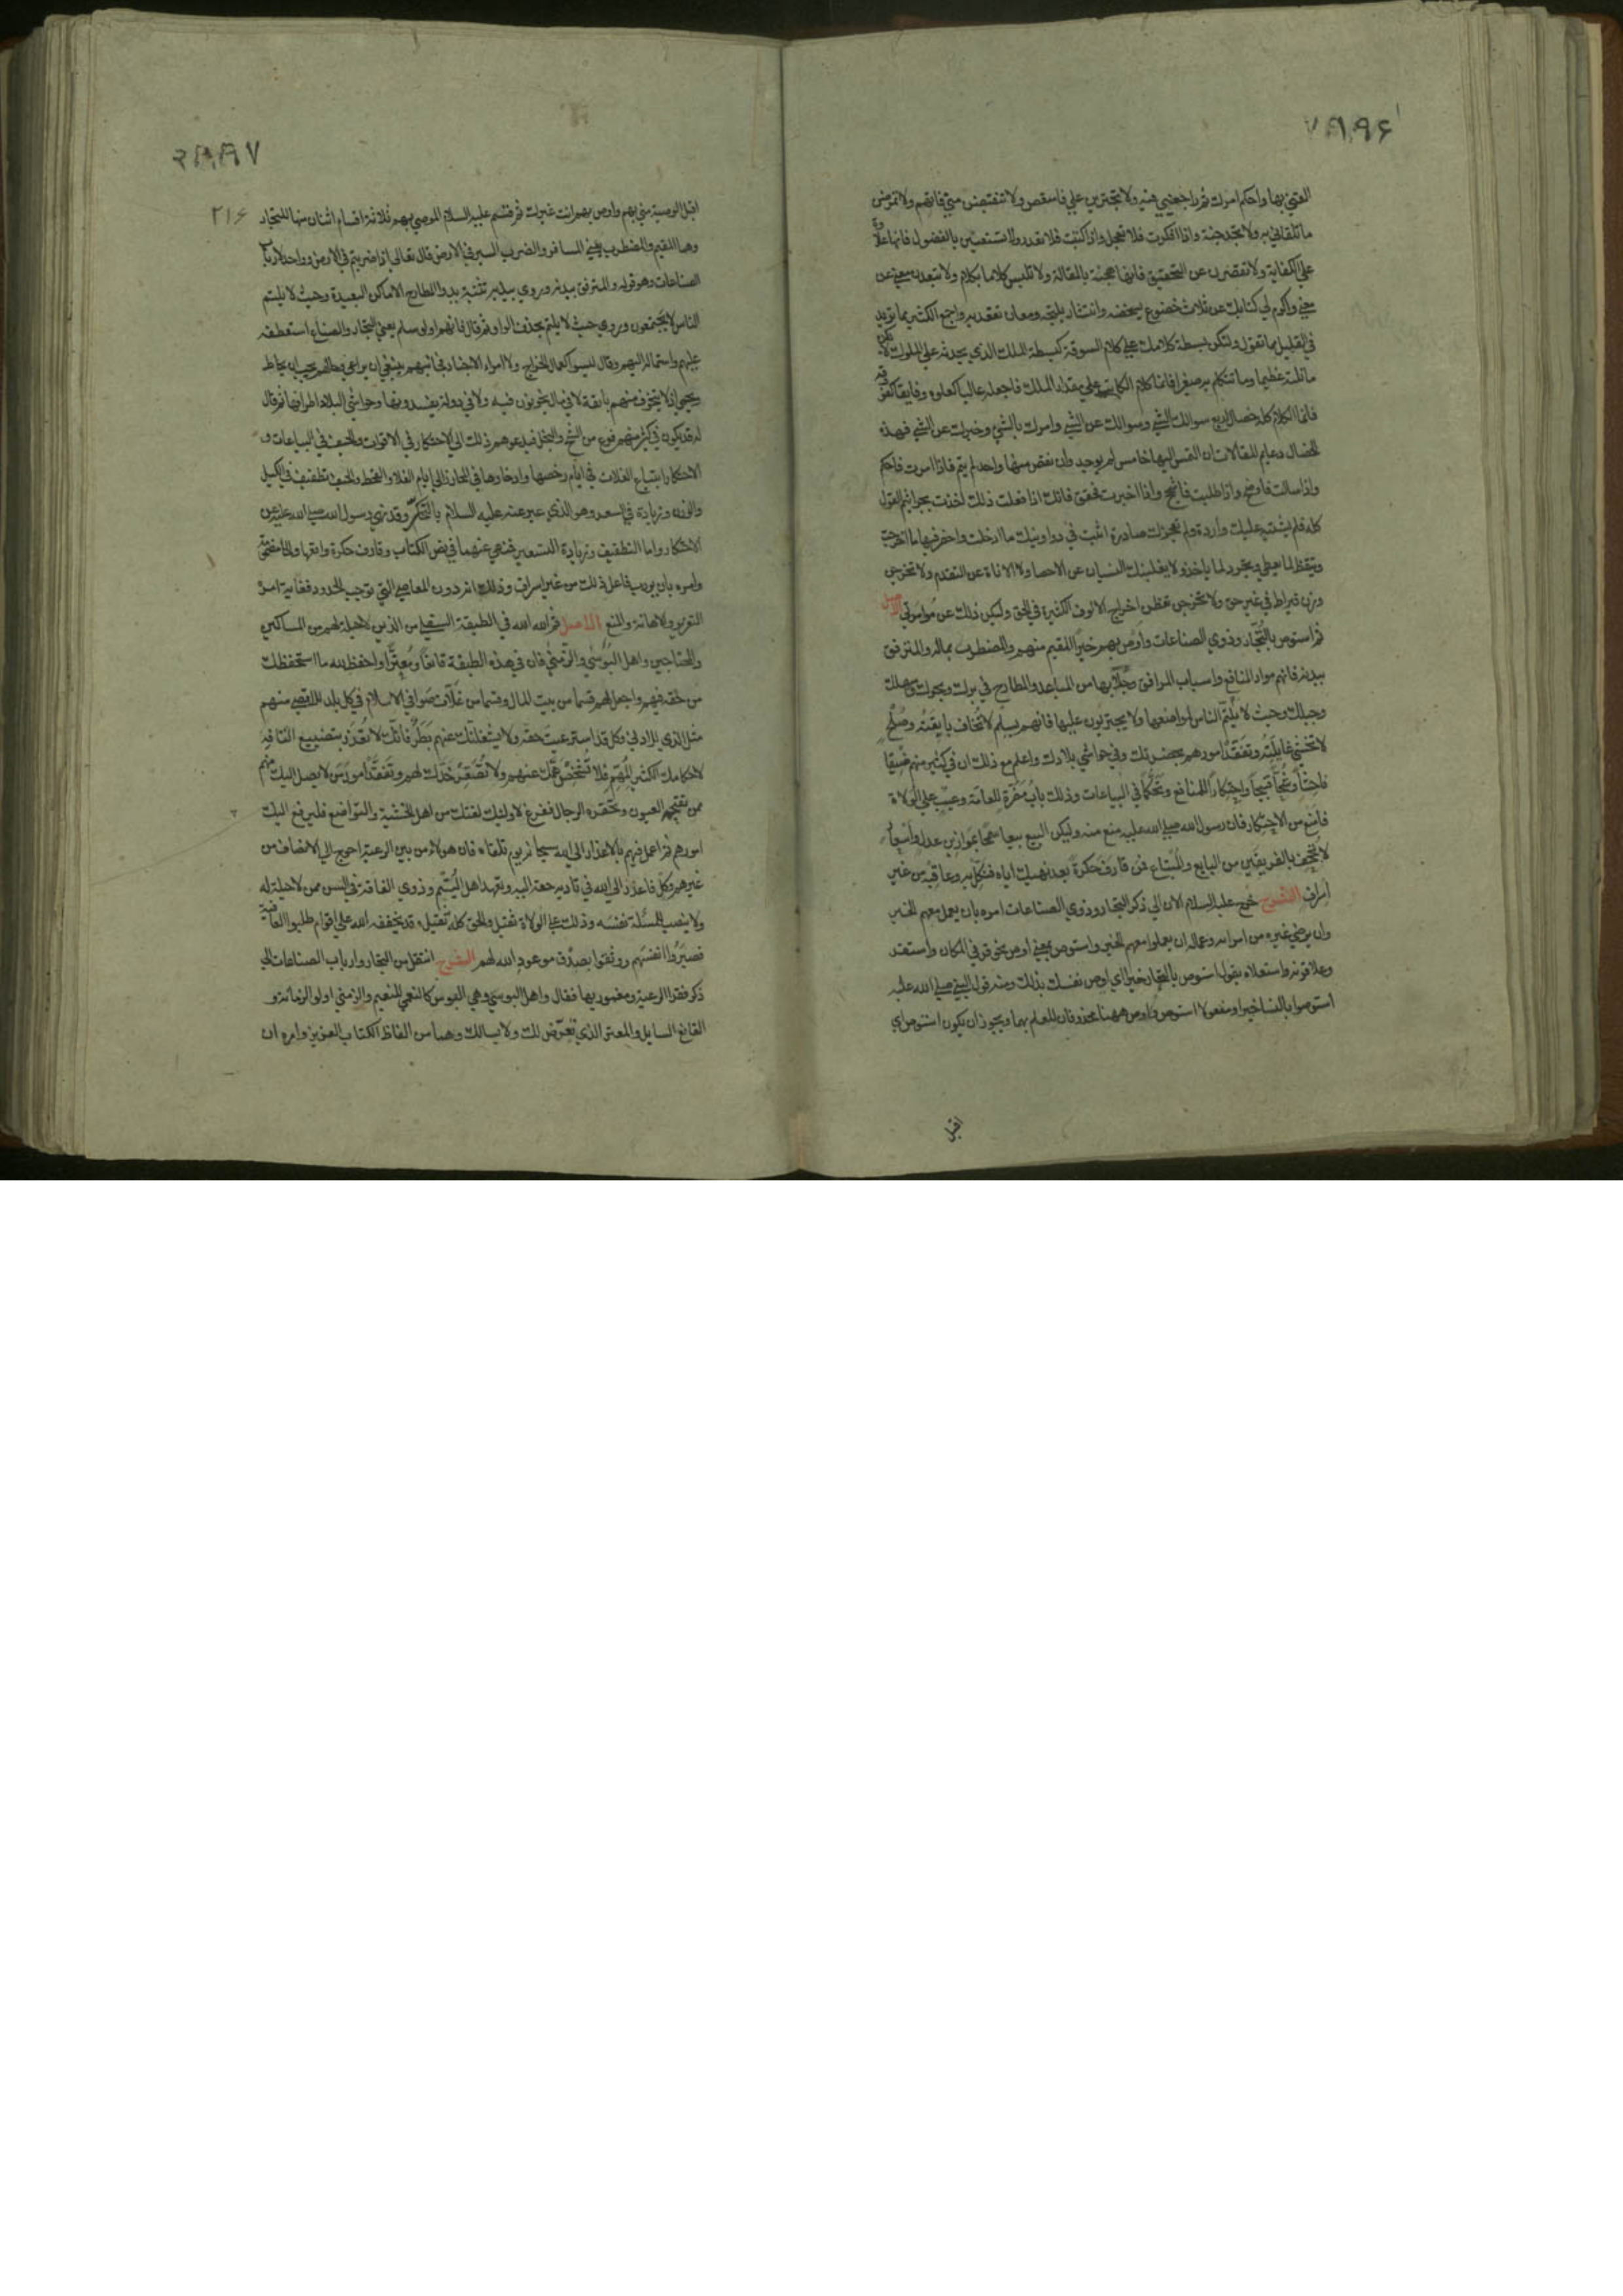 القني بها واحكم امرك ثم راجعني فيه ولا تجترين علي فاسقص ولا تنقبض مني فاتهم ولا تمرض
ما تلقاني به ولا تخدجنه واذا افكرت فلا تعجل واذا كتبت فلا تعذر ولا تستعين بالفضول فانها علاوة
علي الكفاية ولا تقصرن عن التحقيق فانها هجنة بالمقالة ولا تلبس كلاما بكلام ولا تبعدن معني عن
معني واكرم لي كتابك عن ثلاث خضوع يستخفه وانتشار يثبجه ومعان تقعد به واجمع الكثير مما تريد
في القليل مما تقول ولتكن بسطة كلامك علي كلام السوقة كبسطة الملك الذي يحدثه علي الملوك لا يكن
ما نلته عظيما وما تتكلم به صغيرا فانما كلام الكاتب علي مقدار الملك فاجعله عاليا كعلوه وفايقا كفوقه
فانما الكلام كله خصال اربع سوالك الشي وسوالك عن الشي وامرك بالشي وخبرك عن الشي فهذه
الخصال دعايم المقالات ان التمس اليها خامس لم يوجد وان نقص منها واحد لم يتم فاذا امرت فاحكم
واذا سالت فاوضح واذا طلبت فاسجح واذا اخبرت فحقق فانك اذا فعلت ذلك اخذت بجراثيم القول
كله فلم يشتبه عليك واردة ولم تعجزك صادرة اثبت في دواوينك ما ادخلت واحضر فيها ما اخرجت
وتيقظ لما يعطي وتجرد لما ياخذ ولا يغلبنك النسيان عن الاحصا ولا الاناة عن التقدم ولا تخرجن
وزن قيراط في غير حق ولا تخرجن تعظمن اخراج الالوف الكثيرة في الحق وليكن ذلك عن موامرتي الاصل
ثم استوص بالتجار وذوي الصناعات واوص بهم خيرا المقيم منهم والمضطرب بماله والمترفق
ببدنه فانهم مواد المنافع واسباب المرافق وجلابها من المباعد والمطارح في برك وبحرك وسهلك
وجبلك وحيث لا يلتئم الناس لمواضعها ولا يجترئون عليها فانهم سلم لا تخاف بايقته وصلح
لا تخشي غايلته وتفقد امورهم بحضرتك وفي حواشي بلادك واعلم مع ذلك ان في كثير منهم ضيقا
فاحشا وشحا قبيحا واحتكارا للمنافع وتحكما في البياعات وذلك باب مضرة للعامة وعيب علي الولاة
فامنع من الاحتكار فان رسول الله صلي الله عليه منع منه وليكن البيع بيعا سمحا بموازين عدل واسعار
لا تجحف بالفريقين من البايع والمبتاع فمن قارف حكرة بعد نهيك اياه فنكل به وعاقبه من غير
اسراف الشرح خرج عليه السلام الان الي ذكر التجار وذوي الصناعات امره بان يعمل معهم الخير
وان يوصي غيره من امرايه وعماله ان يعملوا معهم الخير واستوص بمعني اوص نحو قر في المكان واستقر
وعلا قرنه واستعلاه يقول استوص بالتجار خيرا اي اوص نفسك بذلك ومنه قول النبي صلي الله عليه
استوصوا بالنسا خيرا ومفعولا استوص واوص ههنا محذوفان للعلم بهما ويجوز ان يكون استوص اي
اقبل
٢١٦
اقبل الوصية مني بهم واوص بهم انت غيرك ثم قسم عليه السلام الموصي بهم ثلاثة اقسام اثنان منها للتجار
وهما المقيم والمضطرب يعني المسافر والضرب السير في الارض قال تعالي اذا ضربتم في الارض وواحد لارباب
الصناعات وهو قوله والمترفق ببدنه وروي بيديه تثنية يد والمطارح الاماكن البعيدة وحيث لا يلتئم
الناس لا يجتمعون وروي حيث لا يلتئم بحذف الواو ثم قال فانهم اولو سلم يعني التجار والصناع استعطفه
عليهم واستماله اليهم وقال ليسوا كعمال الخراج ولا امراء الاجناد فجانبهم ينبغي ان يراعي وحالهم يجب ان يحاط
ويحمي اذ لا يتخوف منهم بايقة لا في مال يخونون فيه ولا في دولة يفسدونها وحواشي البلاد اطرافها ثم قال
له قد يكون في كثير منهم نوع من الشح والبخل فيدعوهم ذلك الي الاحتكار في الاقوات والحيف في البياعات و
الاحتكار ابتياع الغلات في ايام رخصها وادخارها في المخازن الي ايام الغلاء والقحط والحيف تطفيف في الكيل
والوزن وزيادة في السعر وهو الذي عبر عنه عليه السلام بالتحكم وقد نهي رسول الله صلي الله عليه عن
الاحتكار واما التطفيف وزيادة التسعير فنهي عنهما في نص الكتاب وقارف حكرة واقعها والحا مضمومة
وامره بان يودب فاعل ذلك من غير اسراف وذلك انه دون المعاصي التي توجب الحدود فغاية امره
التعزير والاهانة والمنع الاصل ثم الله الله في الطبقة السفلي من الذين لا حيلة لهم من المساكين
والمحتاجين واهل البوسي والزمني فان في هذه الطبقة قانعا ومعترا واحفظ لله ما استحفظك
من حقه فيهم واجعل لهم قسما من بيت المال وقسما من غلات صوافي الاسلام في كل بلد فان للاقصي منهم
مثل الذي للادني وكل قد استرعيت حقه ولا يشغلنك عنهم بطر فانك لا تعذر بتضييع التافه
لاحكامك الكثير المهم فلا تشخص همك عنهم ولا تصعر خدك لهم وتفقد امور من لا يصل اليك منهم
ممن تقتحمه العيون وتحقره الرجال ففرغ لاولئك ثقتك من اهل الخشية والتواضع فليرفع اليك
امورهم ثم اعمل فيهم بالاعذار الي الله سبحانه يوم تلقاه فان هولاء من بين الرعية احوج الي الانصاف من
غيرهم وكل فاعذر الي الله في تادية حقه اليه وتعهد اهل اليتم وذوي الفاقة في السن ممن لا حيلة له
ولا ينصب للمسئلة نفسه وذلك علي الولاة ثقيل والحق كله ثقيل وقد يخففه الله علي اقوام طلبوا العافية
فصبروا انفسهم ووثقوا بصدق موعود الله لهم الشرح انتقل من التجار وارباب الصناعات الي
ذكر فقرا الرعية ومغموريها فقال واهل البوسي وهي البوس كالنعمي للنعيم والزمني اولو الزمانة و
القانع السايل والمعتر الذي تعرض لك ولا يسالك وهما من الفاظ الكتاب العزيز وامره ان